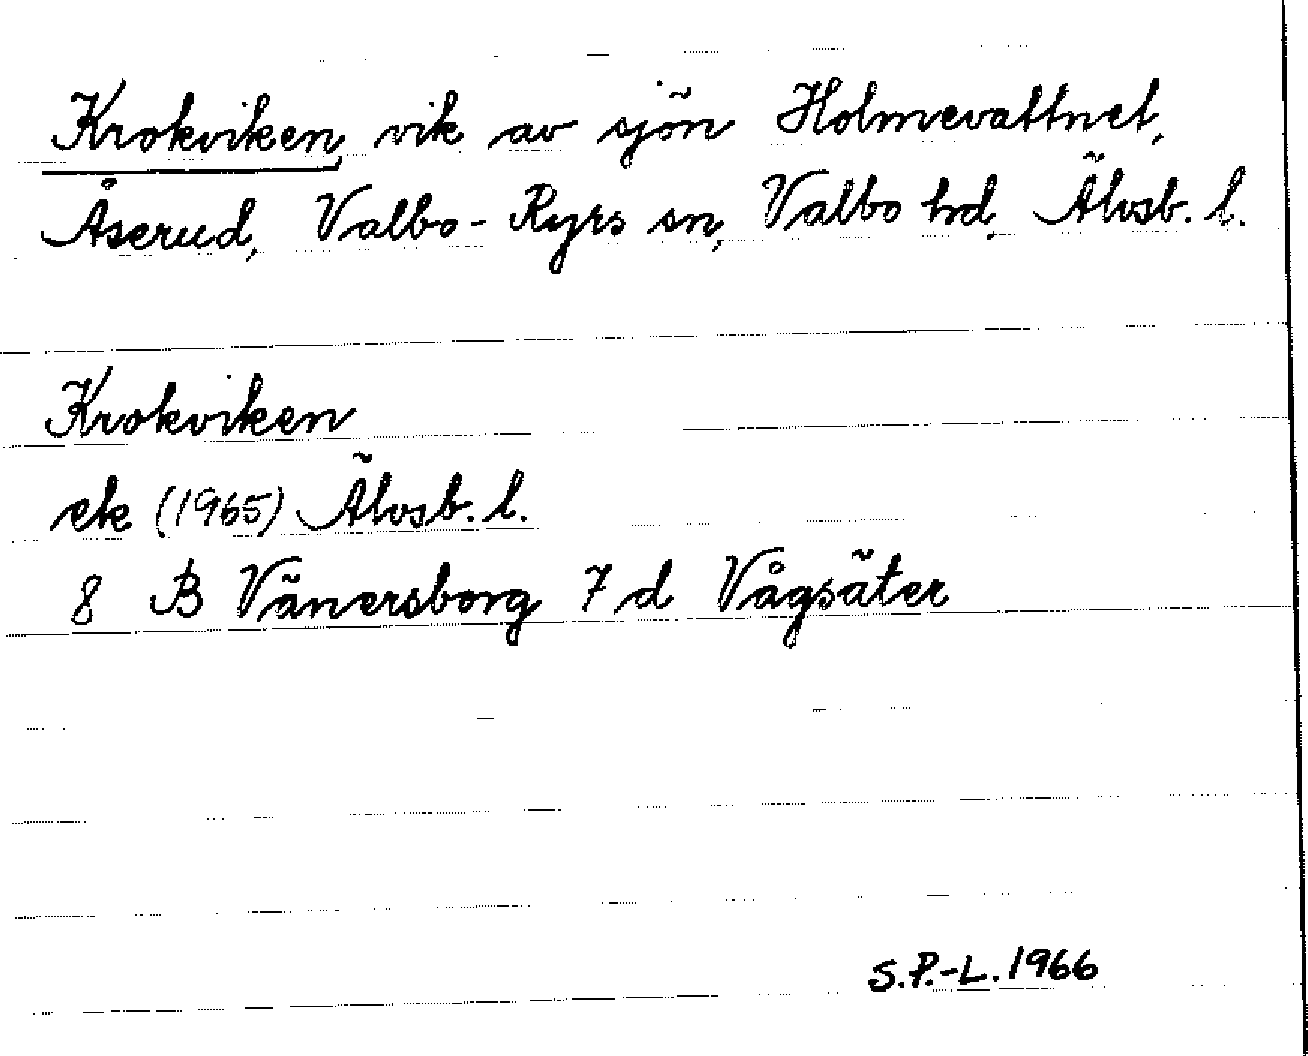 Krokviken, vik av sjön Holmevattnet,
Åserud, Valbo-Ryrs sn, Valbo hd, Älvsb. l.
Krokviken
ek (1965) Älvsb. l.
8 B Vänersborg 7 d Vågsäter
S.P.-L. 1966